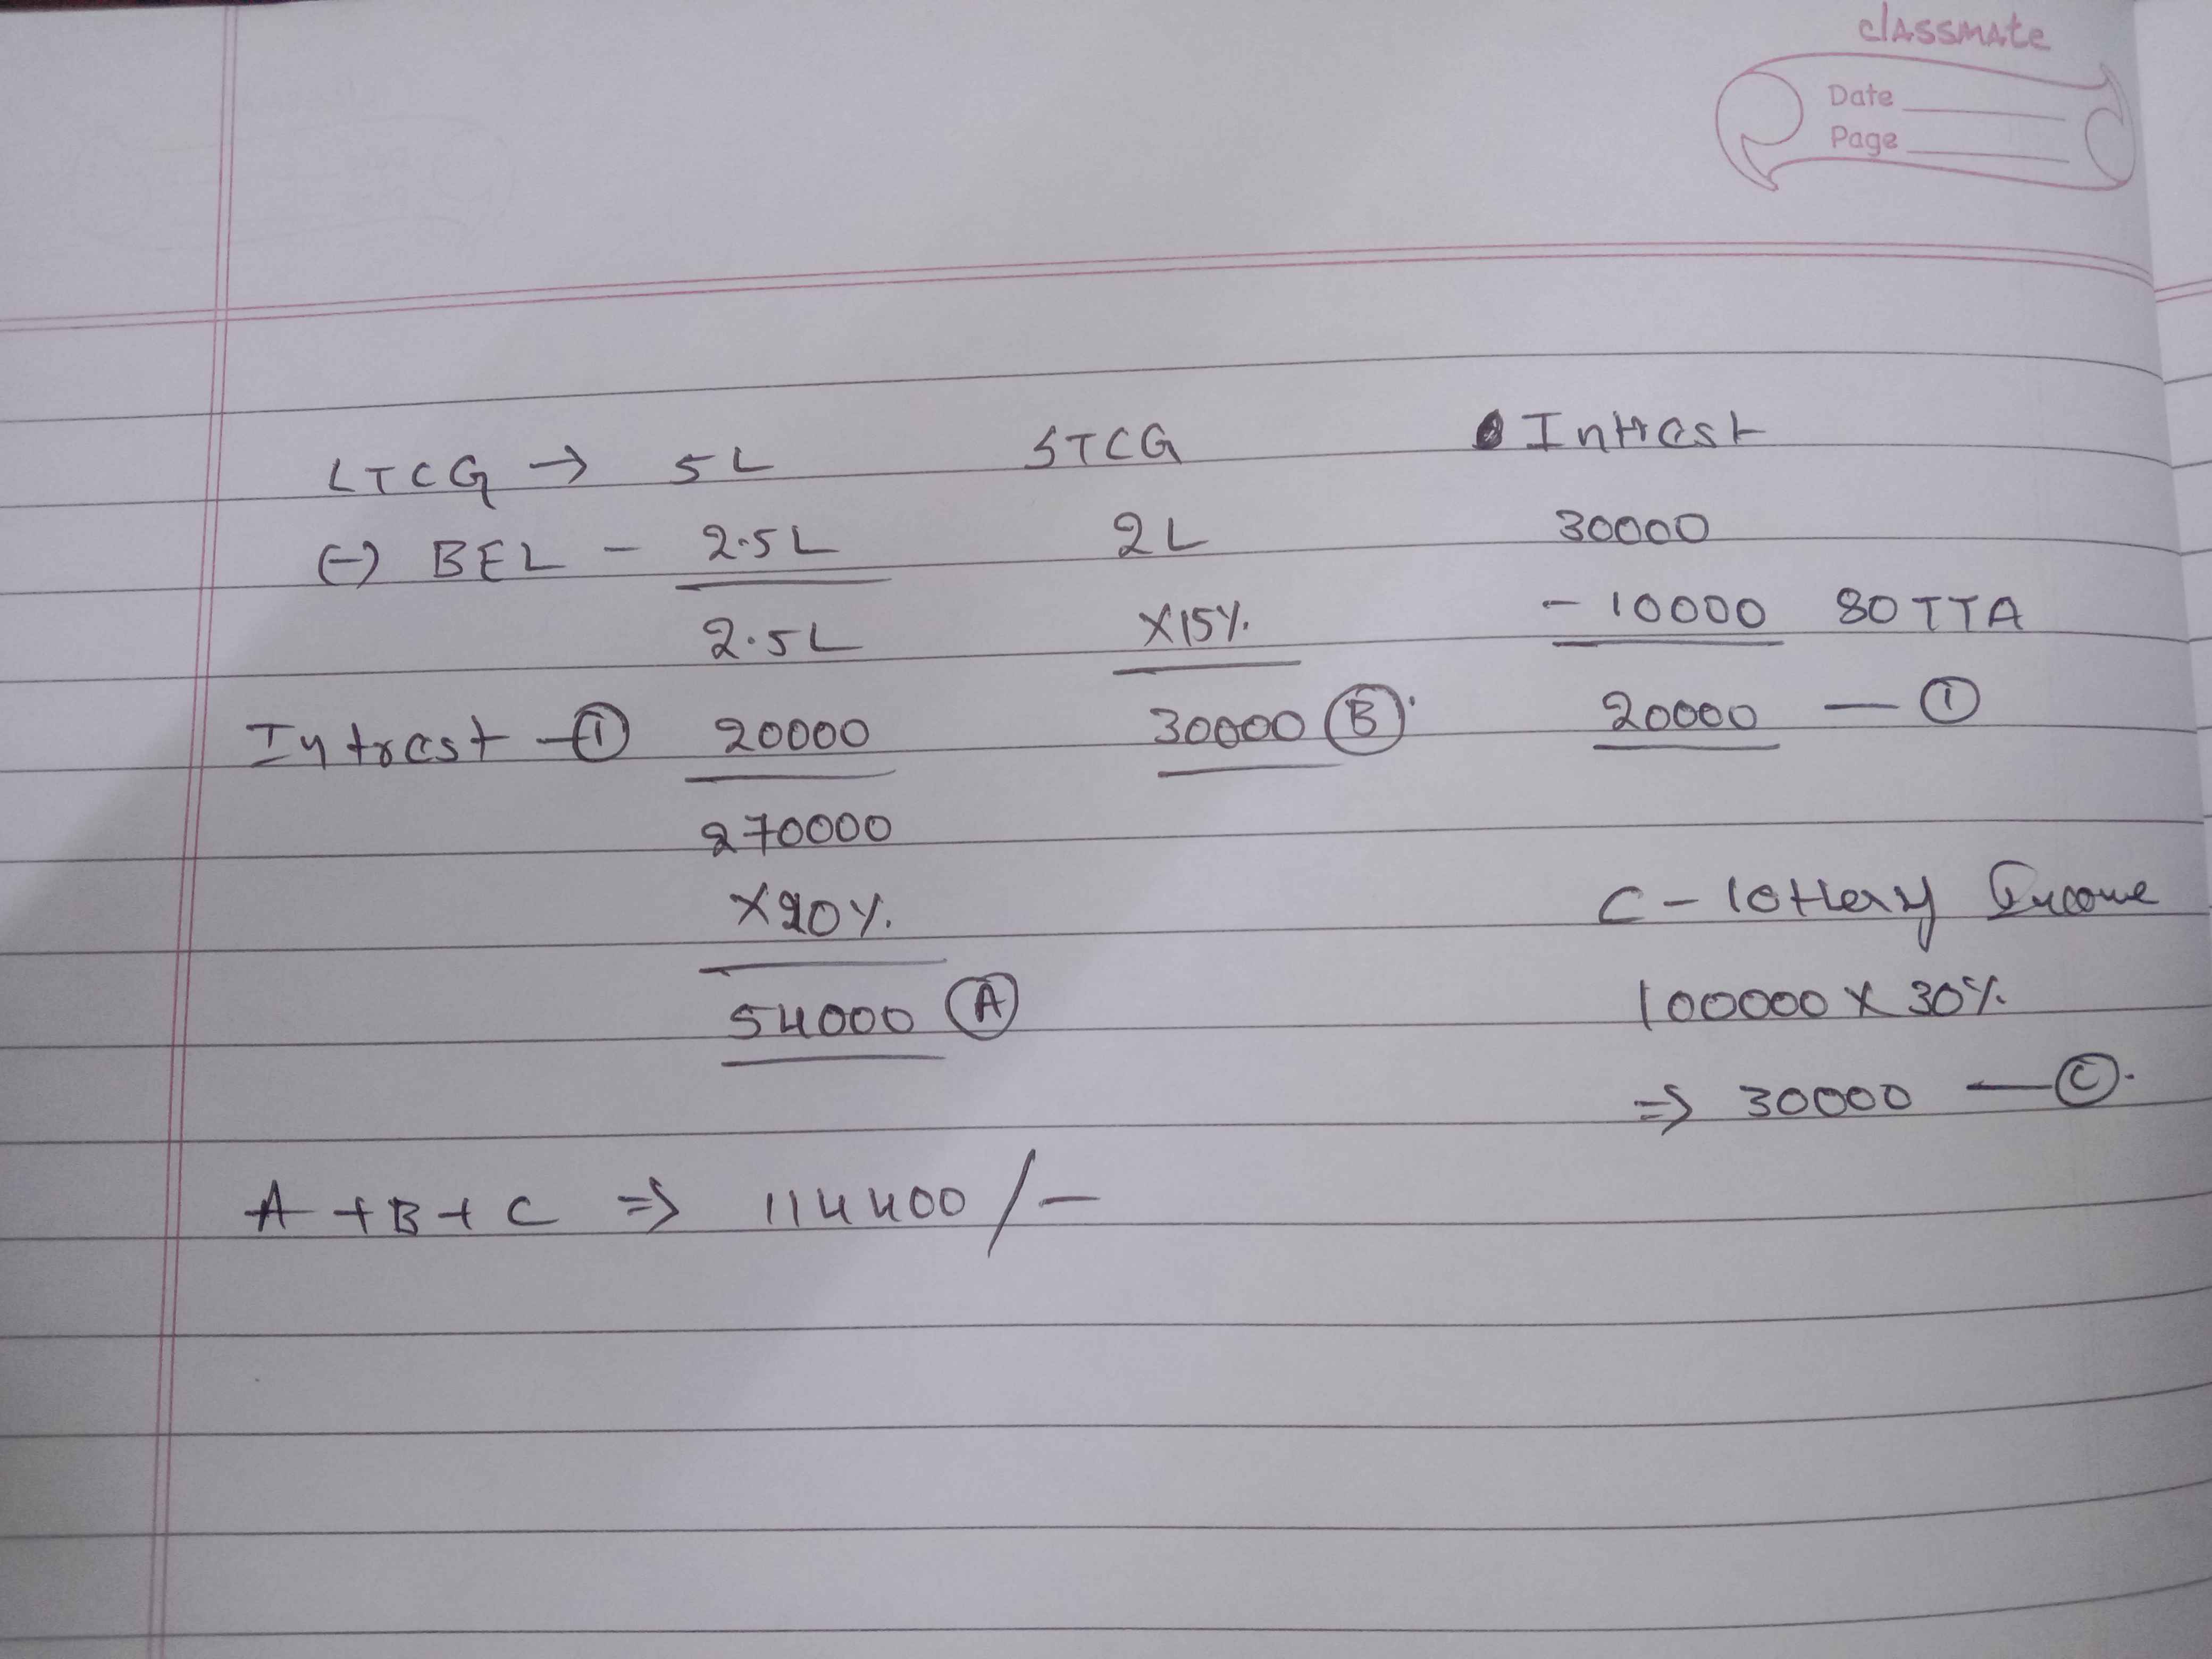 classmate
Date
Page
LTCG → 5L STCG Intrest
(-) BEL - 2.5L 2L 30000
2.5L X15%. - 10000 80TTA
Intrest - ① 20000 30000 Ⓑ 20000 — ①
270000
X20%. C - lottery Income
54000 Ⓐ 100000 X 30%.
⇒ 30000 — Ⓒ.
A + B + C ⇒ 114400/-